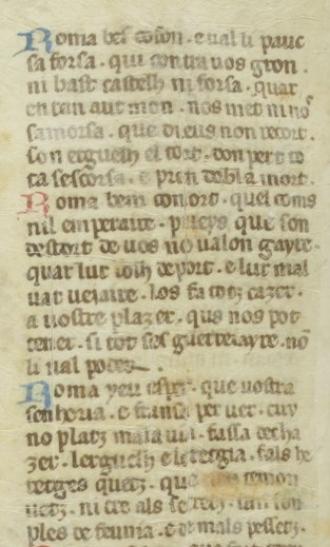 Roma bes cofon . e ual li pauc
sa forsa . qui contra uos gron .
ni bast castelh ni forsa . quar
en tan aut mon . nos met ni no
samorsa . que dieus non recort .
son erguelh el tort . don pert to
ta sescorsa . e pren dobla mort .
Roma bem conort . quel coms
nil emperaire . pueys que son
destort de uos no ualon gayre .
quar lur folh deport . e lur mal
uat ueiaire . los fa totz cazer .
a uostre plazer . que nos pot
tener . si tot ses guerreiayre . no
li ual poder .
Roma yeu esper . que uostra
senhoria . e fransa per uer . cuy
no platz mala uia . fassa decha
zer . lerguelh e leretgia . fals he
retges quetz . que non temon
uetz . ni cre als secretz . tan son
ples de feunia . e de mals pessetz .